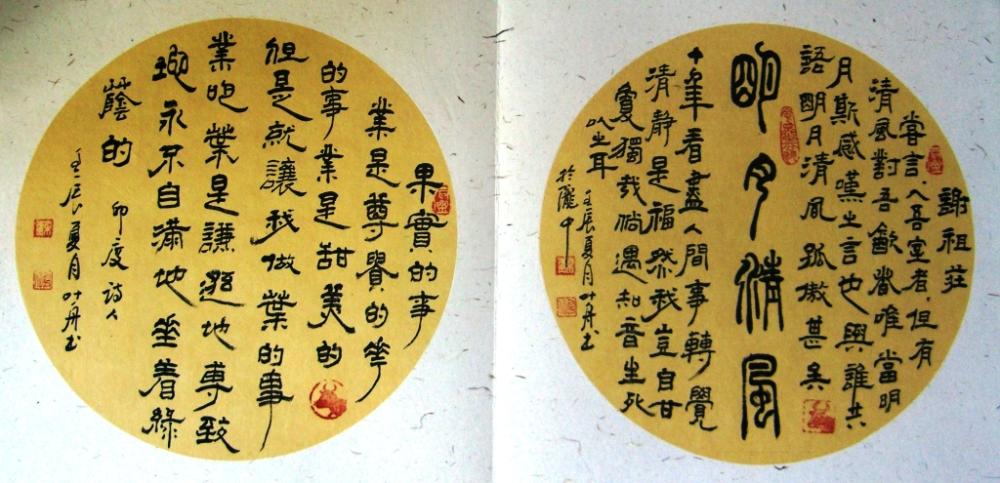 謝祖莊
嘗言，入吾室者，但有
清風對吾飲者唯當明
月斯感嘆之言也與誰共
語明月清風孤傲甚矣
明月清風
十年看盡人間事轉覺
清靜是福然我豈自甘
獨哉倘遇知音生死
以之耳
壬辰夏月叶舟书
於隴中
果實的事
業是尊貴的花
的事業是甜美的
但是就讓我做葉的事
業吧葉是謙遜地專致
地永不自滿地垂着綠
蔭的
印度詩人
壬辰夏月叶舟书